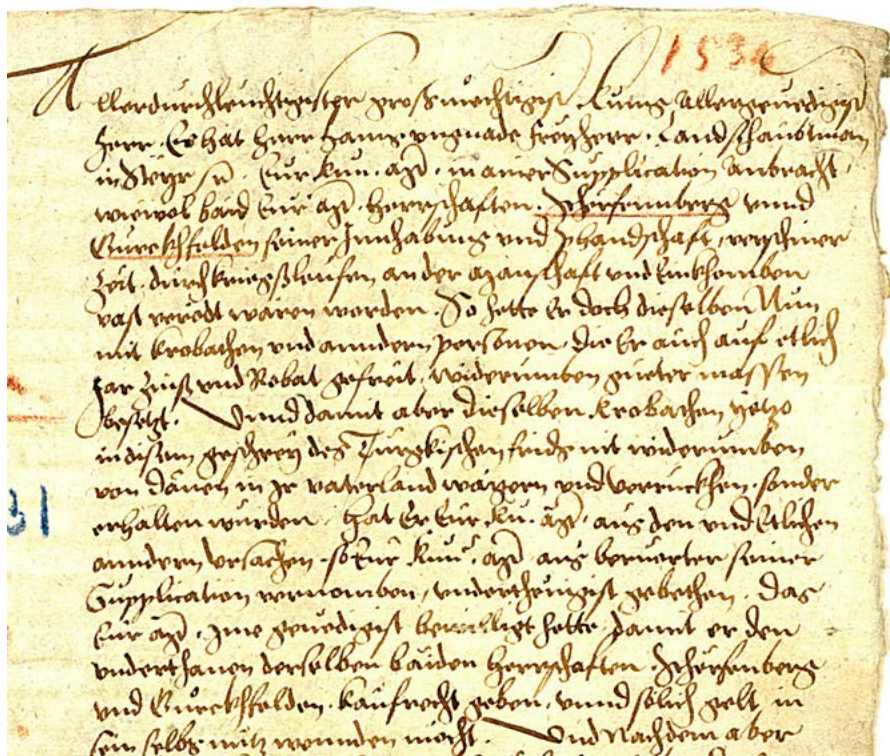 1534
Allerdurchleuchtigister großmechtigist Kunig Allergenedigist
Herr. Es hat Herr Hanns Ungnade Freyherr. Landschaubtman
in Steyr Eur Kun. in ainer Supplication anbracht,
wiewol baid Eur Herrschaften. Scherffennberg unnd
Gurckhfelden seiner Innhabung und Phandschaft, verschiner
Zeit. durch kriegsleufen an der manschaft und Einkhomben
vast verödt waren worden. So hette Er doch dieselben Nun
mit Krobathen und anndern personen. die Er auch auf etlich
Jar Zinß und Robat gefreit. widerumben gueter massen
besetzt. Unnd damit aber dieselben Krobathen yetzo
in disem geschrey des Türgkischen frids nit widerumben
von dänen in Ir vaterland und verruckhen. sonder
erhalten wurden. hat Er Eur Ku. aus den und Etlichen
anndern ursachen. so Eur Kun. aus berurter seiner
Supplication vernomben, underthenigist gebethen. Das
Eur Ime genedigist bewilligt hette, damit er den
underthanen derselben baiden Herrschaften. Scherfenberg
und Gurckhfelden. kaufrecht geben, unnd solich gelt in
sein selbs nutz wennden mecht. Und Nachdem aber